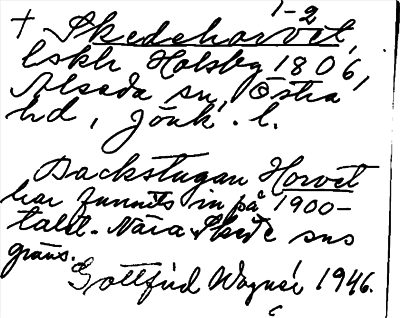 1-2
+ Skedehorvet,
lskh Holsby 1806,
Alseda sn, Östra
hd, Jönk. l.
Backstugan Horvet
har funnits in på 1900-
talet. Nära Skede sns
gräns.
Gottfrid Wagnér 1946.